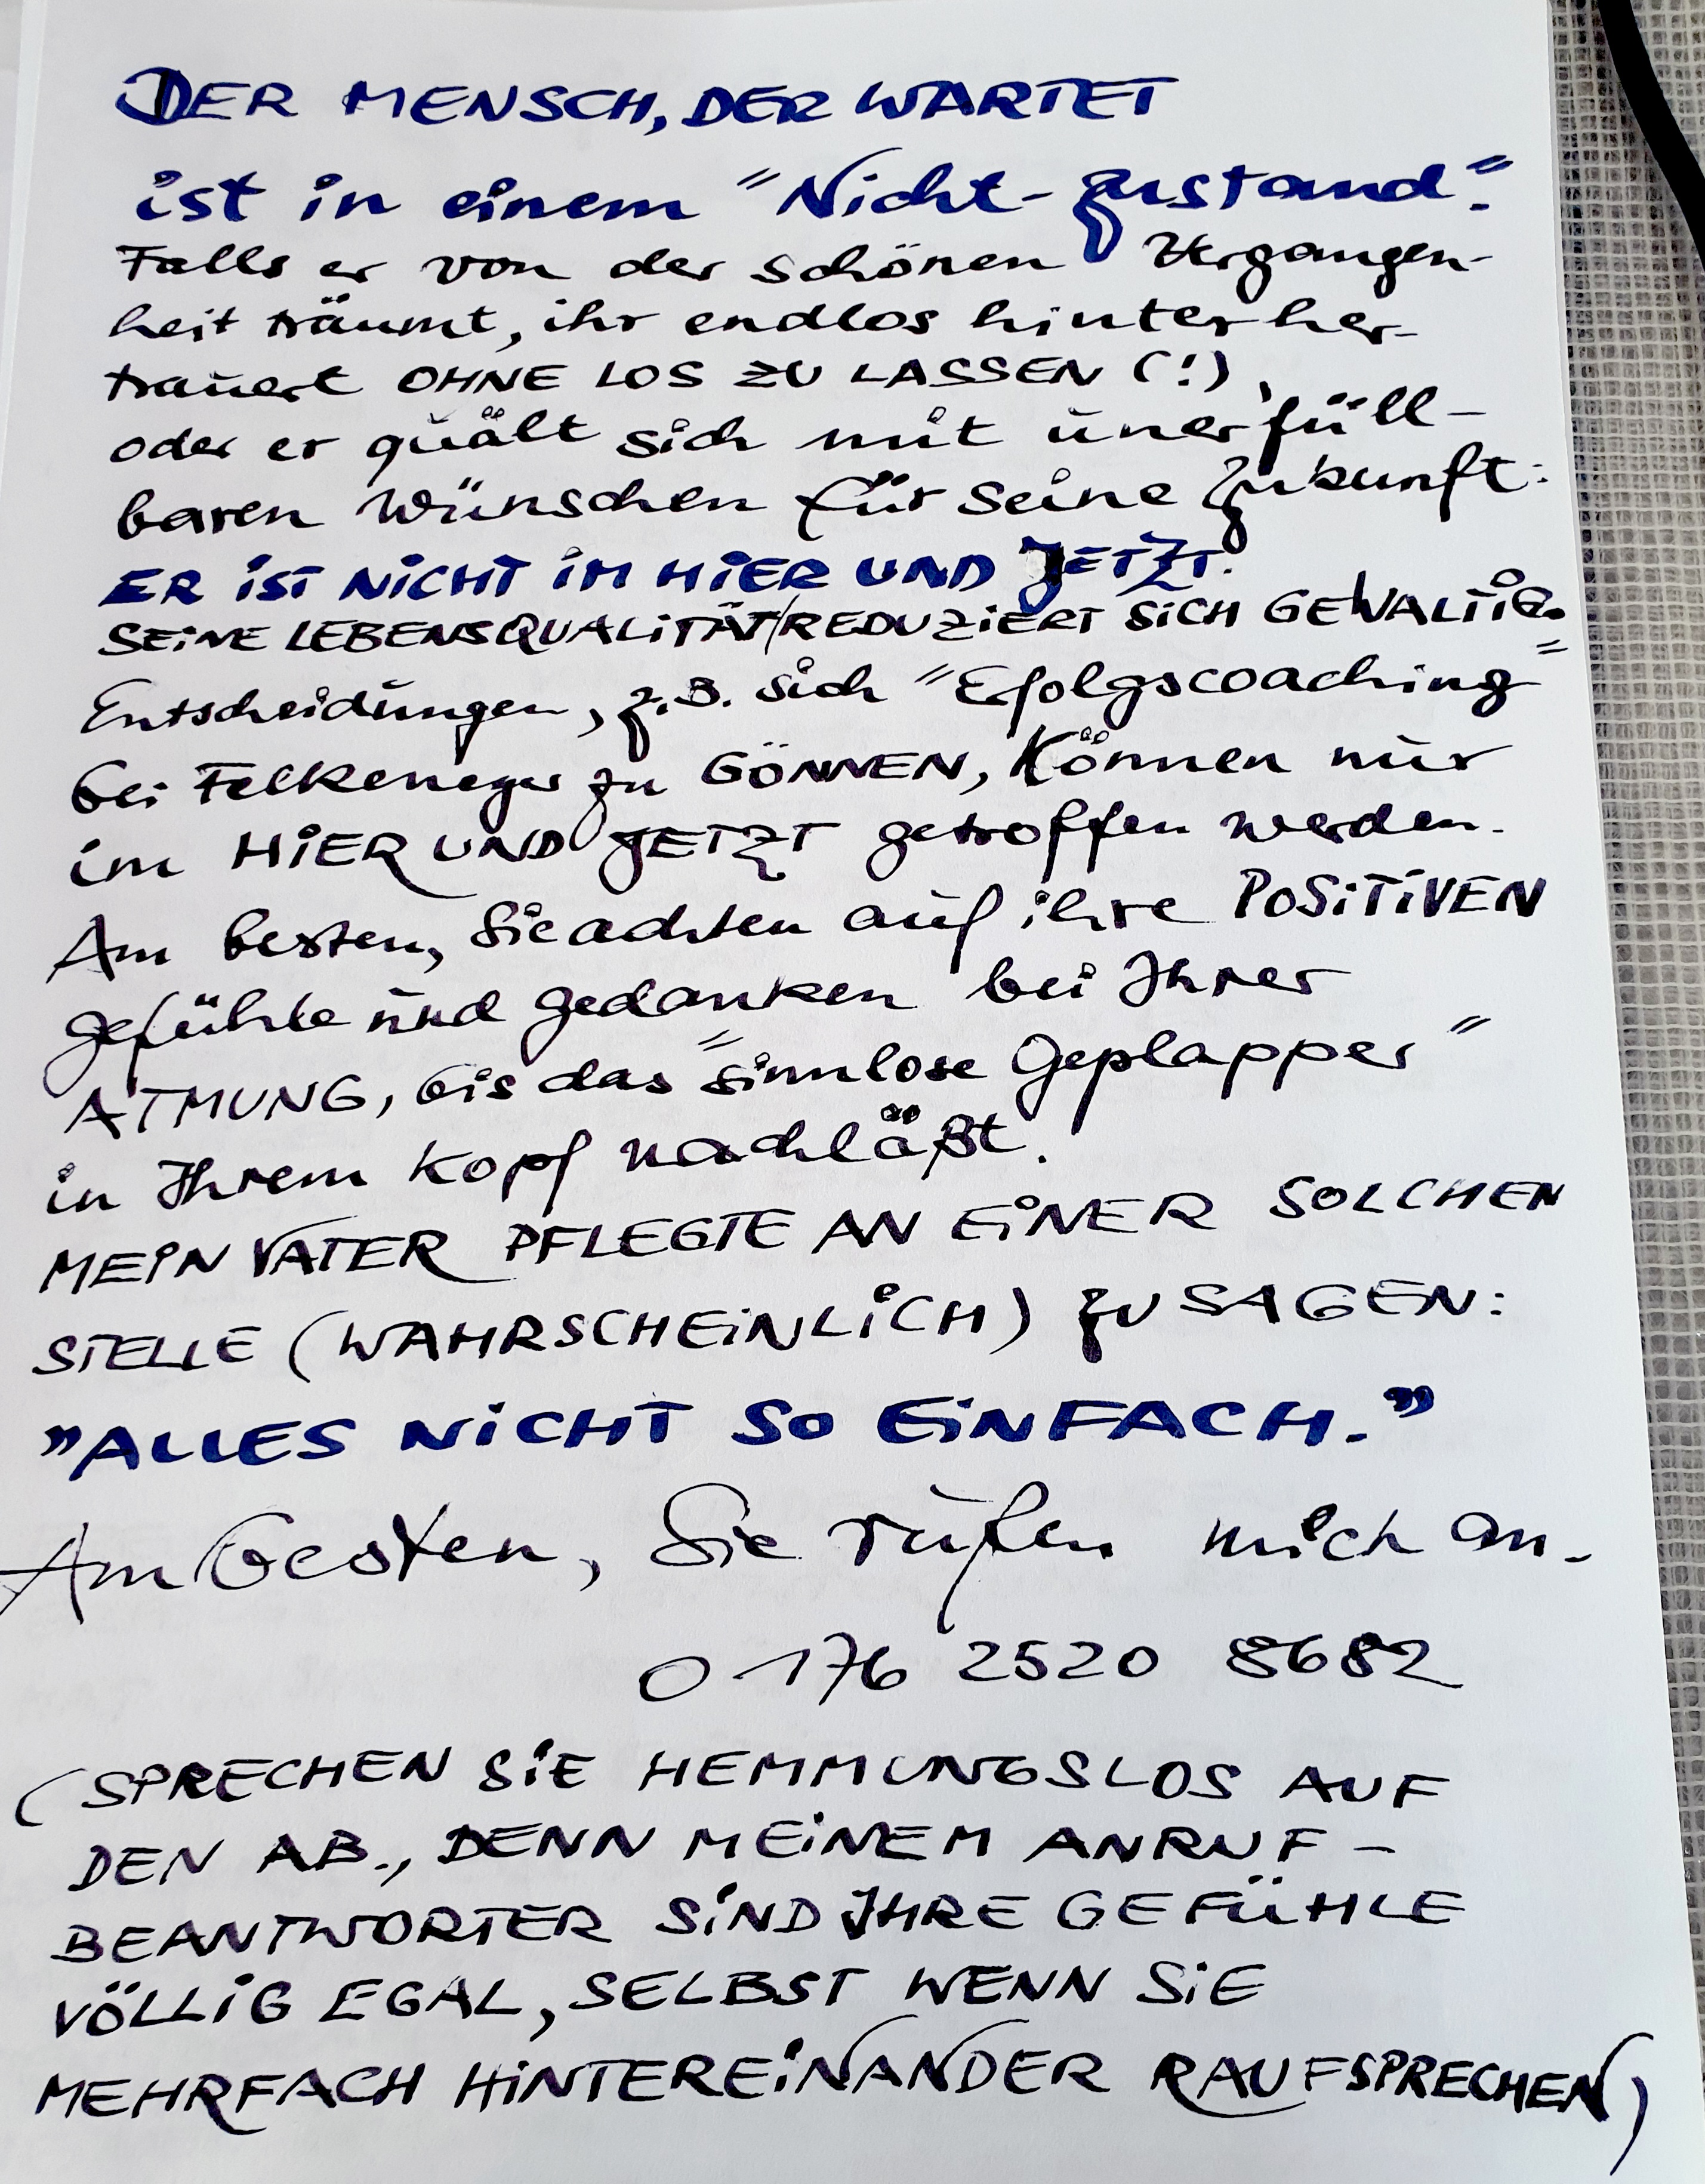 DER MENSCH, DER WARTET
ist in einem "Nicht-Zustand".
Falls er von der schönen Vergangen-
heit träumt, ihr endlos hinterher-
trauert OHNE LOS ZU LASSEN (!),
oder er quält sich mit unerfüll-
baren Wünschen für seine Zukunft:
ER IST NICHT IM HIER UND JETZT.
SEINE LEBENSQUALITÄT REDUZIERT SICH GEWALTIG.
Entscheidungen, z.B. sich "Erfolgscoaching"
bei Felkeneyer zu GÖNNEN, können nur
im HIER UND JETZT getroffen werden.
Am besten, Sie achten auf ihre POSITIVEN
Gefühle und Gedanken bei Ihrer
ATMUNG, bis das "sinnlose Geplapper"
in Ihrem Kopf nachläßt.
MEIN VATER PFLEGTE AN EINER SOLCHEN
STELLE (WAHRSCHEINLICH) ZU SAGEN:
"ALLES NICHT SO EINFACH."
Am besten, Sie rufen mich an.
0176 2520 8682
(SPRECHEN SIE HEMMUNGSLOS AUF
DEN AB., DENN MEINEM ANRUF-
BEANTWORTER SIND IHRE GEFÜHLE
VÖLLIG EGAL, SELBST WENN SIE
MEHRFACH HINTEREINANDER RAUFSPRECHEN)